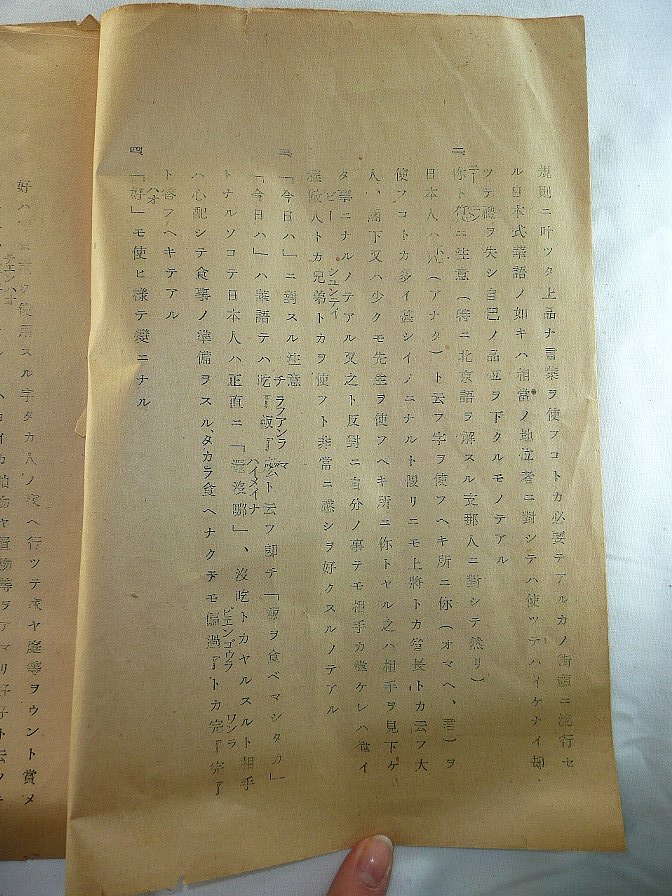 規則ニ叶ツタ上品ナ言葉ヲ使フコトカ必要テアルカノ街頭ニ流行セ
ル日本式華語ノ如キハ相當ノ地位者ニ對シテハ使ツテハイケナイ却
ツテ禮ヲ失シ自己ノ品位ヲ下クルモノテアル
你ト您ニ注意(特ニ北京語ヲ解スル支那人ニ對シテ然リ)
日本人ハ您(アナタ)ト云フ字ヲ使フヘキ所ニ你(オマヘ、君)ヲ
使フコトカ多イ甚シイノニナルト限リニモ上將トカ省長トカ云フ大
人、閣下又ハ少クモ先生ヲ使フヘキ所ニ你トヤル之ハ相手ヲ見下ケ
タ事ニナルノテアル又之ト反對ニ自分ノ事テモ相手カ
シユンテイ
人トカ兄弟トカヲ使フト非常ニ感シヲ好クスルノテアル
三、「今日ハ」ニ對スル注意
チラフアンラ マ
「今日ハ」ハ華語テハ吃了飯了ト云フ即チ「飯ヲ食ベマシタカ」
ハイメイナ
トナルソコテ日本人ハ正直ニ「還沒哪」、沒吃トカヤルスルト相手
ピエンゴウラ ワンラ
ハ心配シテ食事ノ準備ヲスルタカラ食ヘナクテモ偏過了トカ完了完了
ト答フヘキテアル
ハオ
四、「好」モ使ヒ樣テ變ニナル
好ハ使用スル字タカ人ノ家ヘ行ツテ庭等ヲウント賞メ
チエンハオ